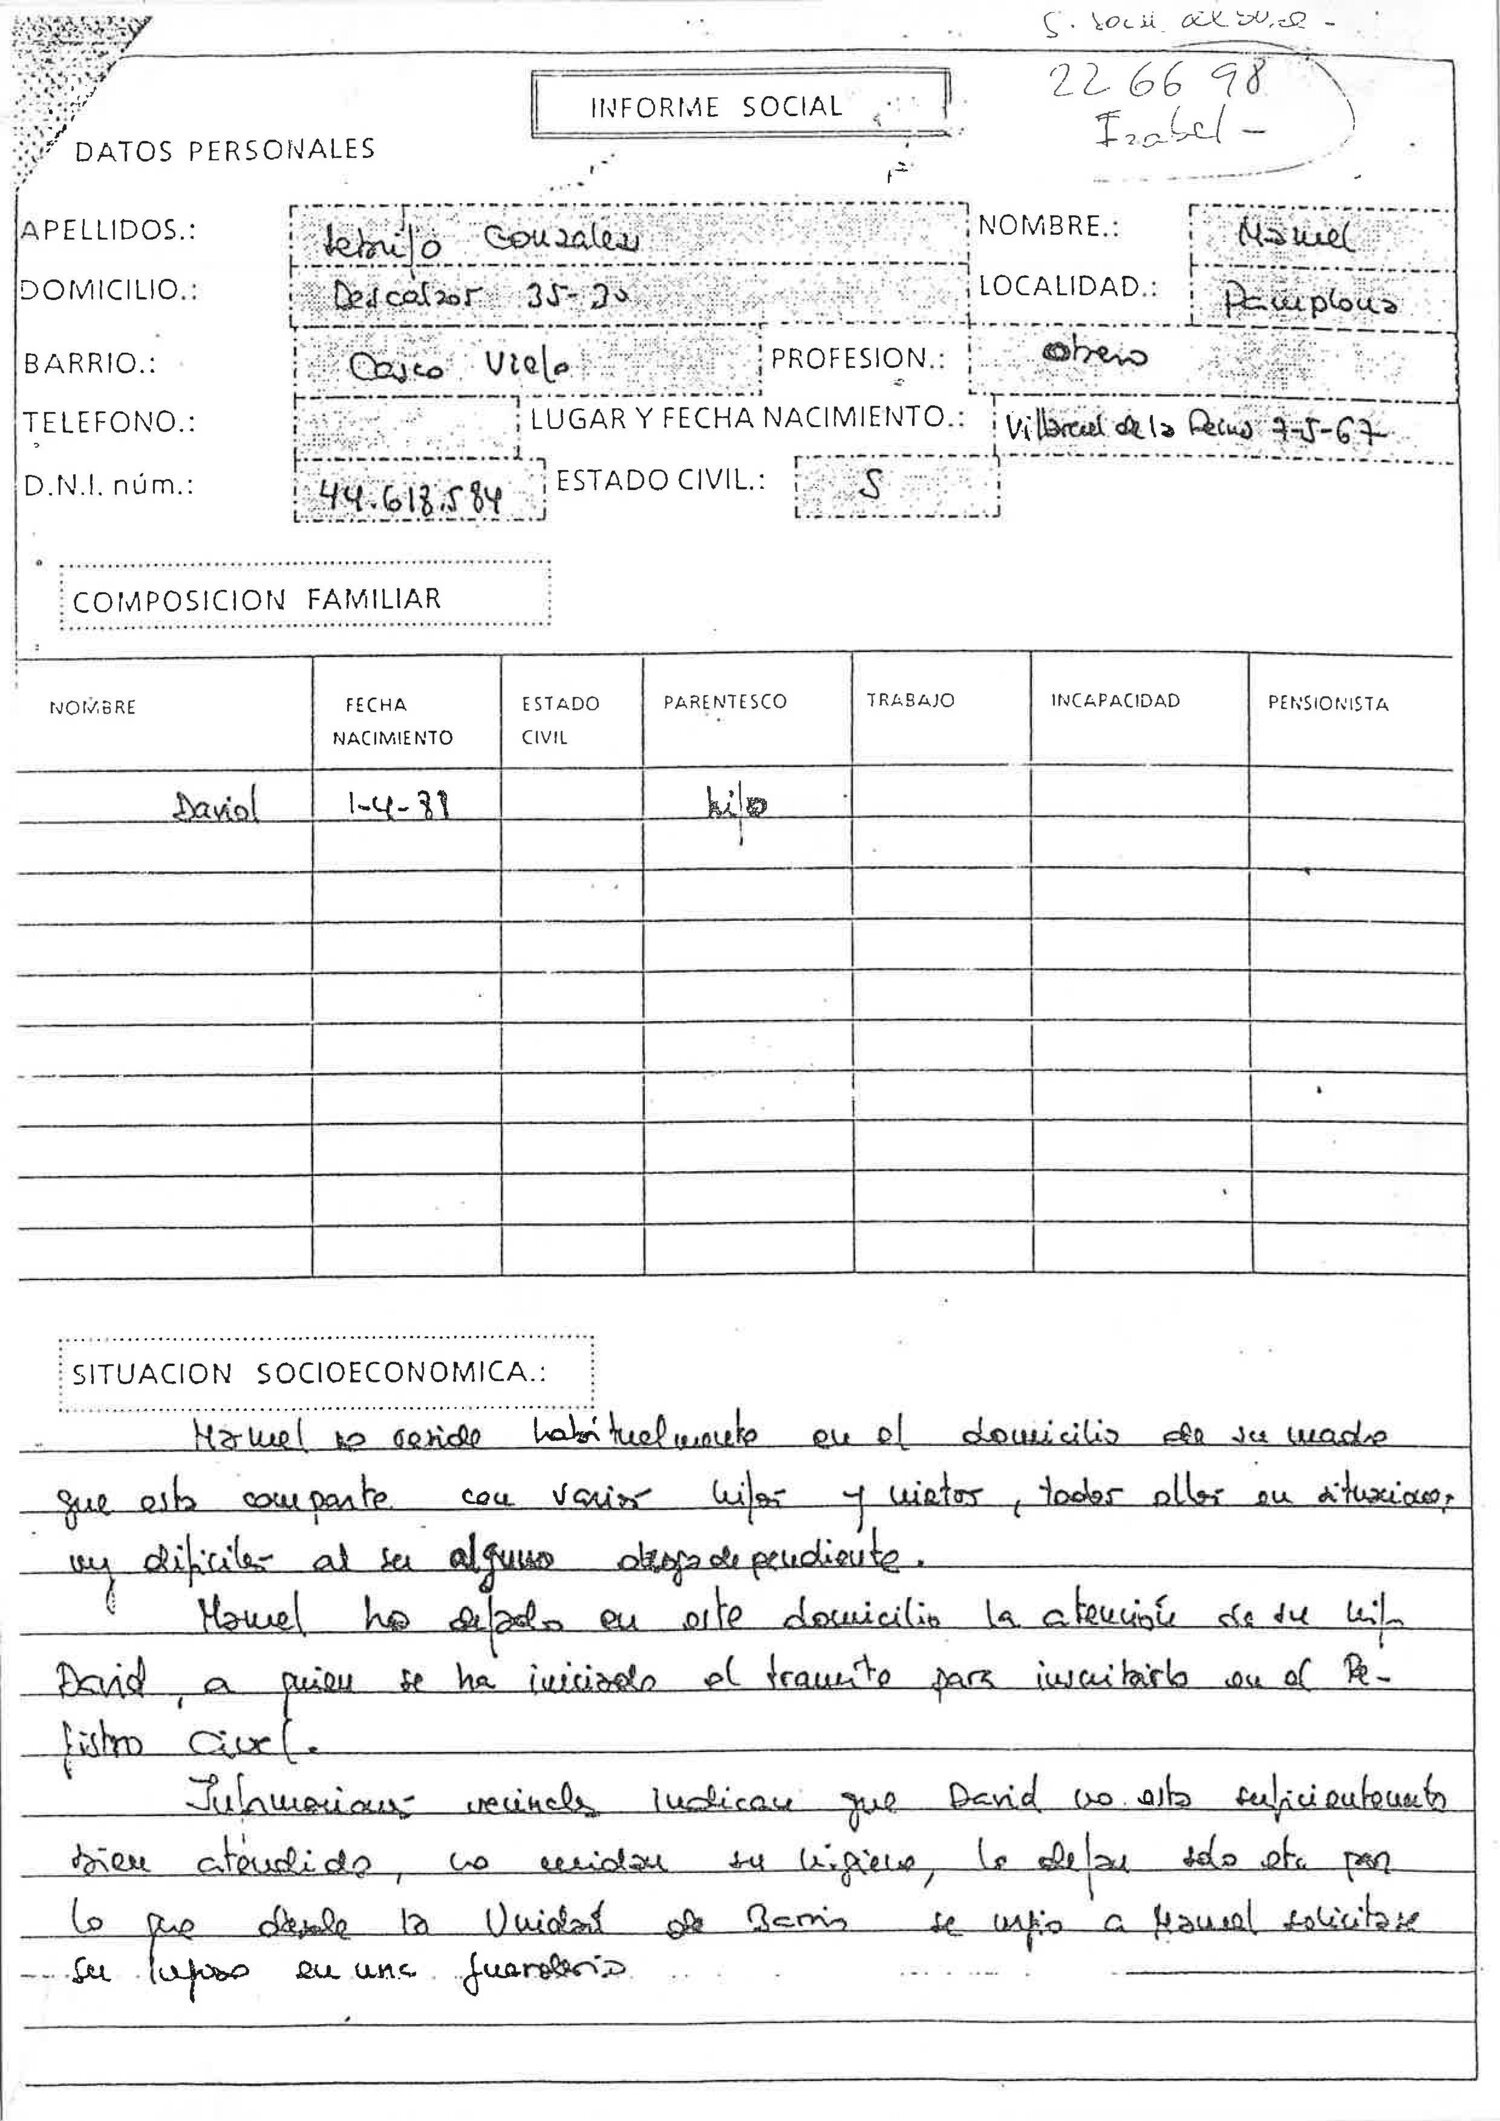 22 66 98
INFORME SOCIAL
Isabel -
DATOS PERSONALES
APELLIDOS.: Gonzalez NOMBRE.: Manuel
DOMICILIO.: Descalzos 35- LOCALIDAD.: Pamplona
BARRIO.: Casco Viejo PROFESION.: obrero
TELEFONO.: LUGAR Y FECHA NACIMIENTO.: de la 7-5-67
D.N.I. núm.: 44.618.584 ESTADO CIVIL.: S
COMPOSICION FAMILIAR
NOMBRE FECHA NACIMIENTO ESTADO CIVIL PARENTESCO TRABAJO INCAPACIDAD PENSIONISTA
David 1-4- hijo
SITUACION SOCIOECONOMICA.:
Manuel no reside habitualmente en el domicilio de su madre
que esta comparte con varios hijos y nietos, todos ellos en situaciones
muy dificiles al ser alguno drogadependiente.
Manuel ha dejado en este domicilio la atención de su hijo
David, a quien se ha iniciado el tramite para inscribirlo en el Re-
gistro Civil.
Informaciones vecinales indican que David no esta suficientemente
bien atendido, no cuidan su higiene, le dejan solo etc por
lo que desde la Unidad de Barrio se urgio a Manuel solicitase
su ingreso en una guarderia